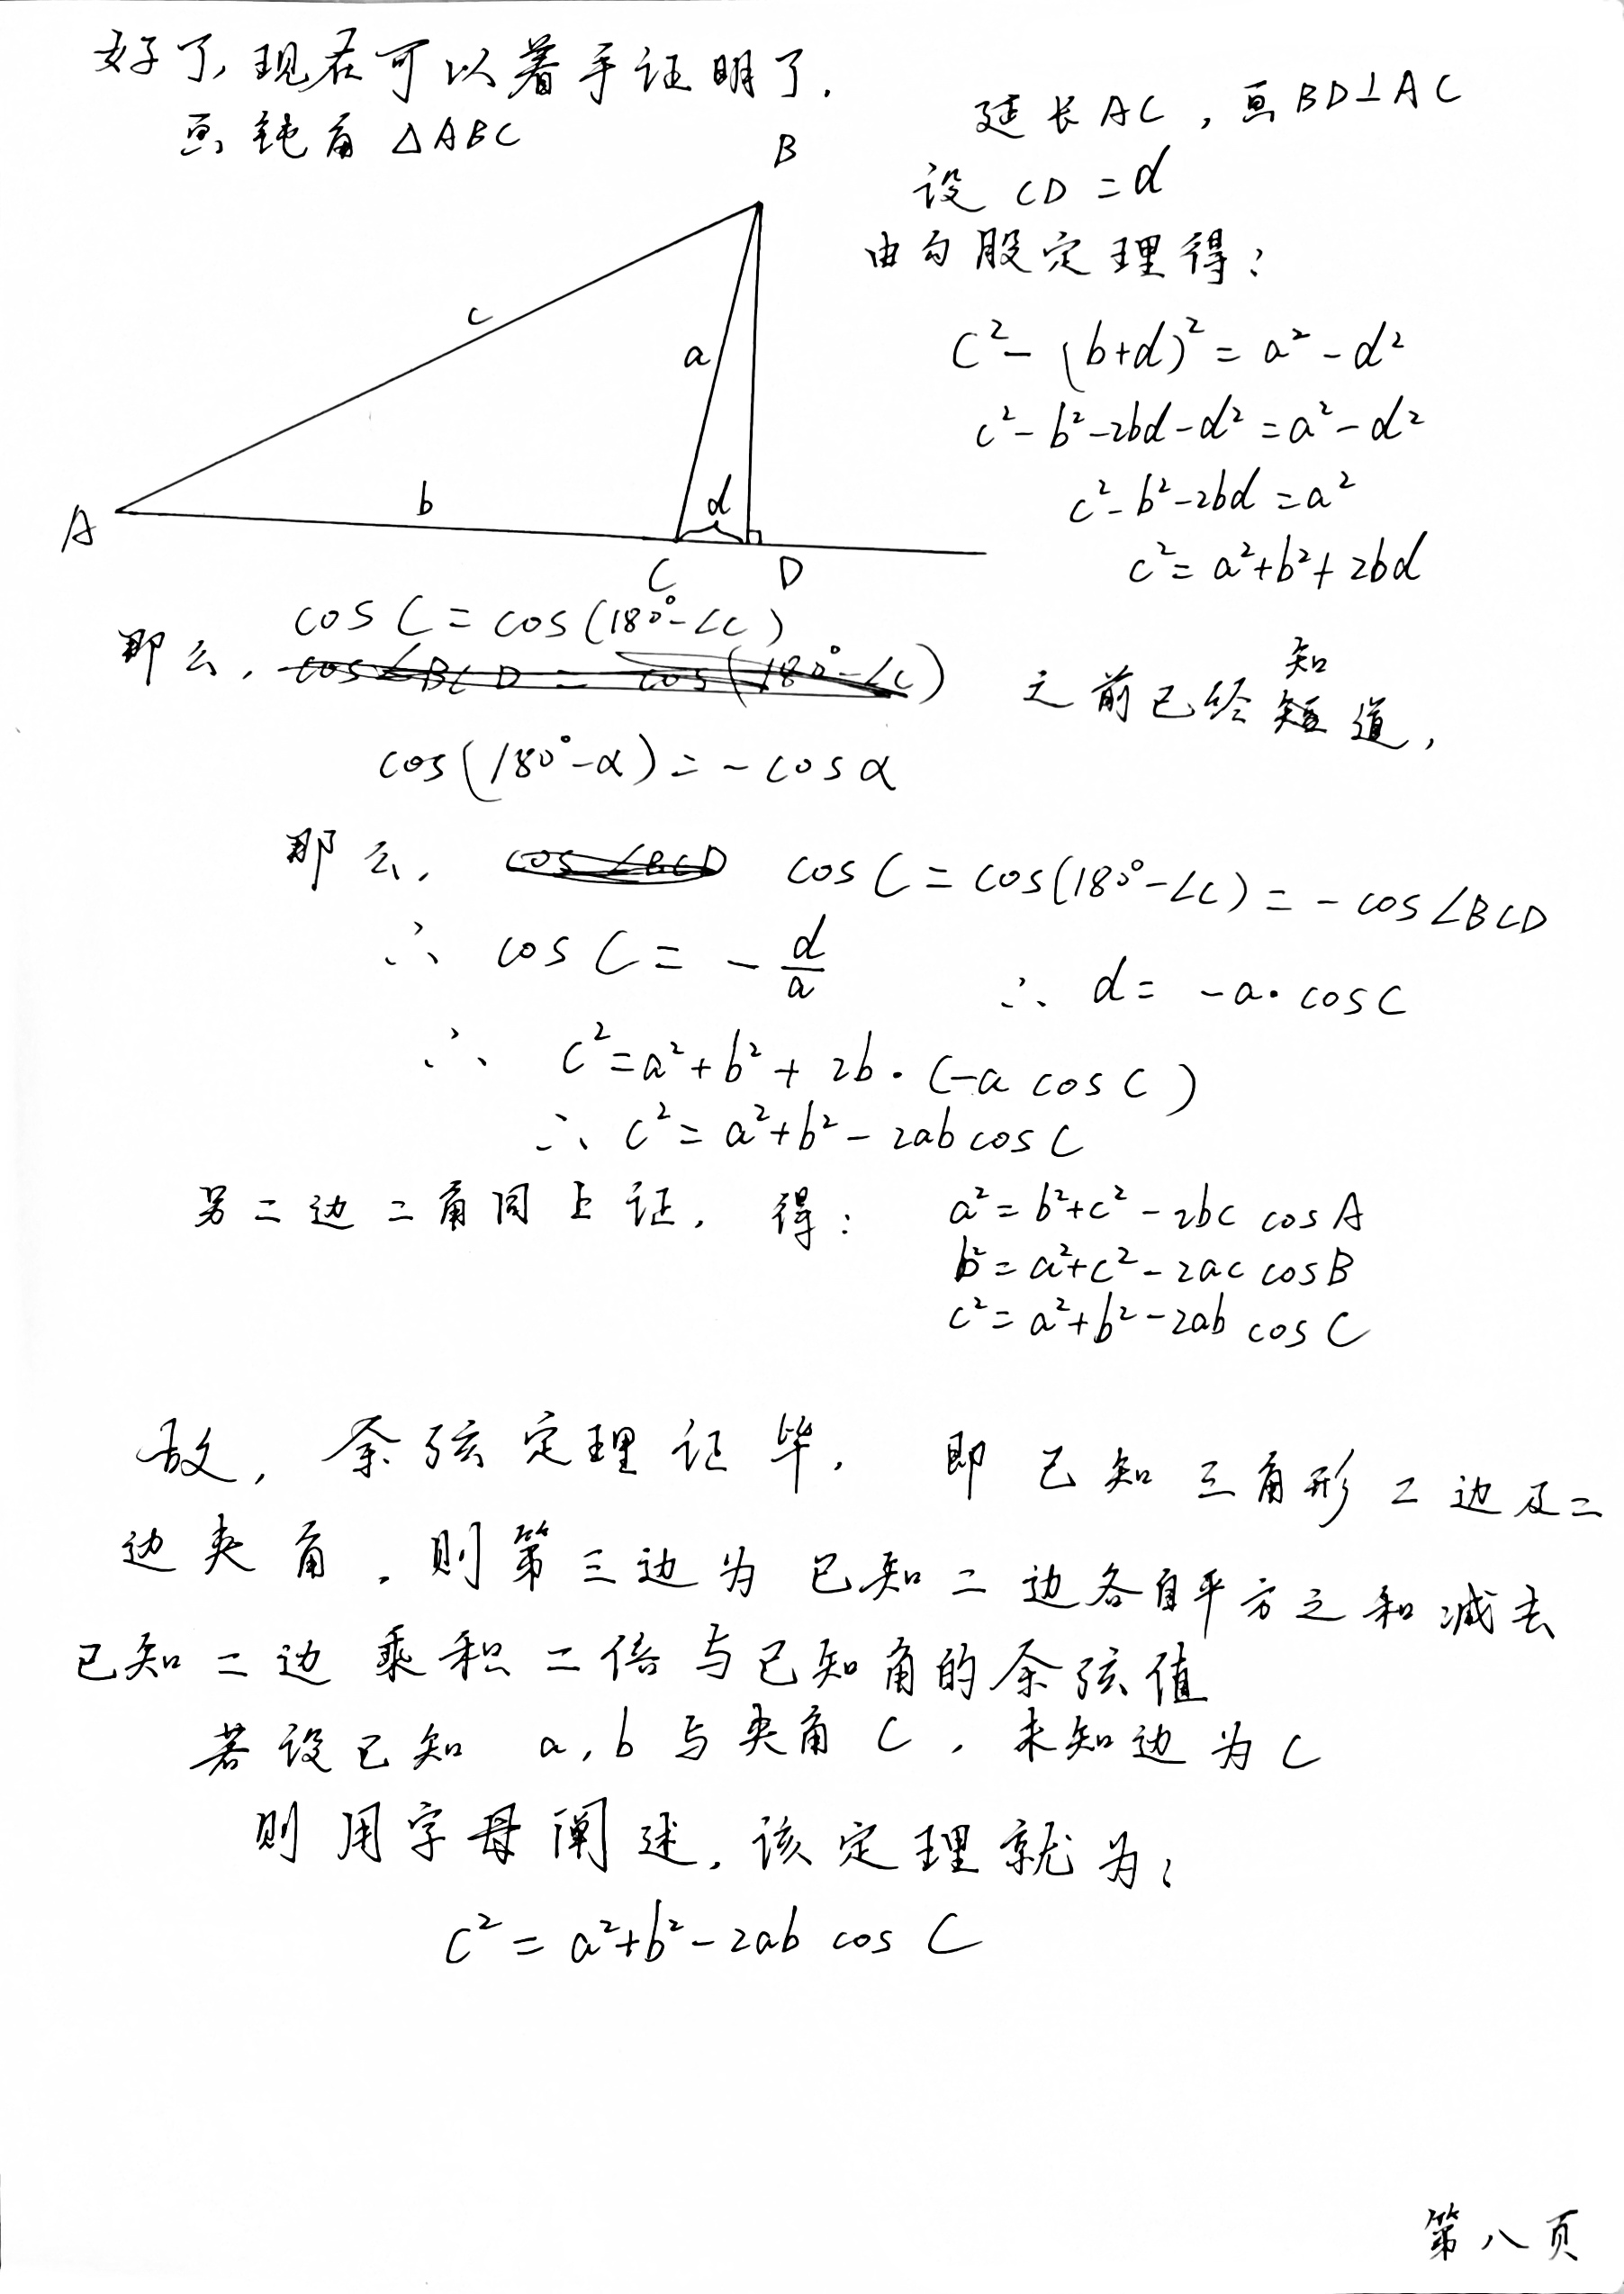 好了,现在可以着手证明了.
画钝角△ABC
延长AC,画BD⊥AC
设 CD=d
由勾股定理得:
c²-(b+d)²=a²-d²
c²-b²-2bd-d²=a²-d²
c²-b²-2bd=a²
c²=a²+b²+2bd
B
c
a
b
d
A
C
D
cos C=cos(180°-∠C)
那么, cos∠BCD=cos(180°-∠C) 之前已经知道,
cos(180°-α)=-cosα
那么, cos∠BCD cos C=cos(180°-∠C)=-cos∠BCD
∴ cos C=-d/a ∴ d=-a·cosC
∴ c²=a²+b²+2b·(-a cosC)
∴ c²=a²+b²-2ab cosC
另二边二角同上证, 得:
a²=b²+c²-2bc cosA
b²=a²+c²-2ac cosB
c²=a²+b²-2ab cosC
故,余弦定理证毕, 即已知三角形二边及二
边夹角,则第三边为已知二边各自平方之和减去
已知二边乘积二倍与已知角的余弦值
若设已知 a,b与夹角C,未知边为c
则用字母阐述,该定理就为:
c²=a²+b²-2ab cos C
第八页